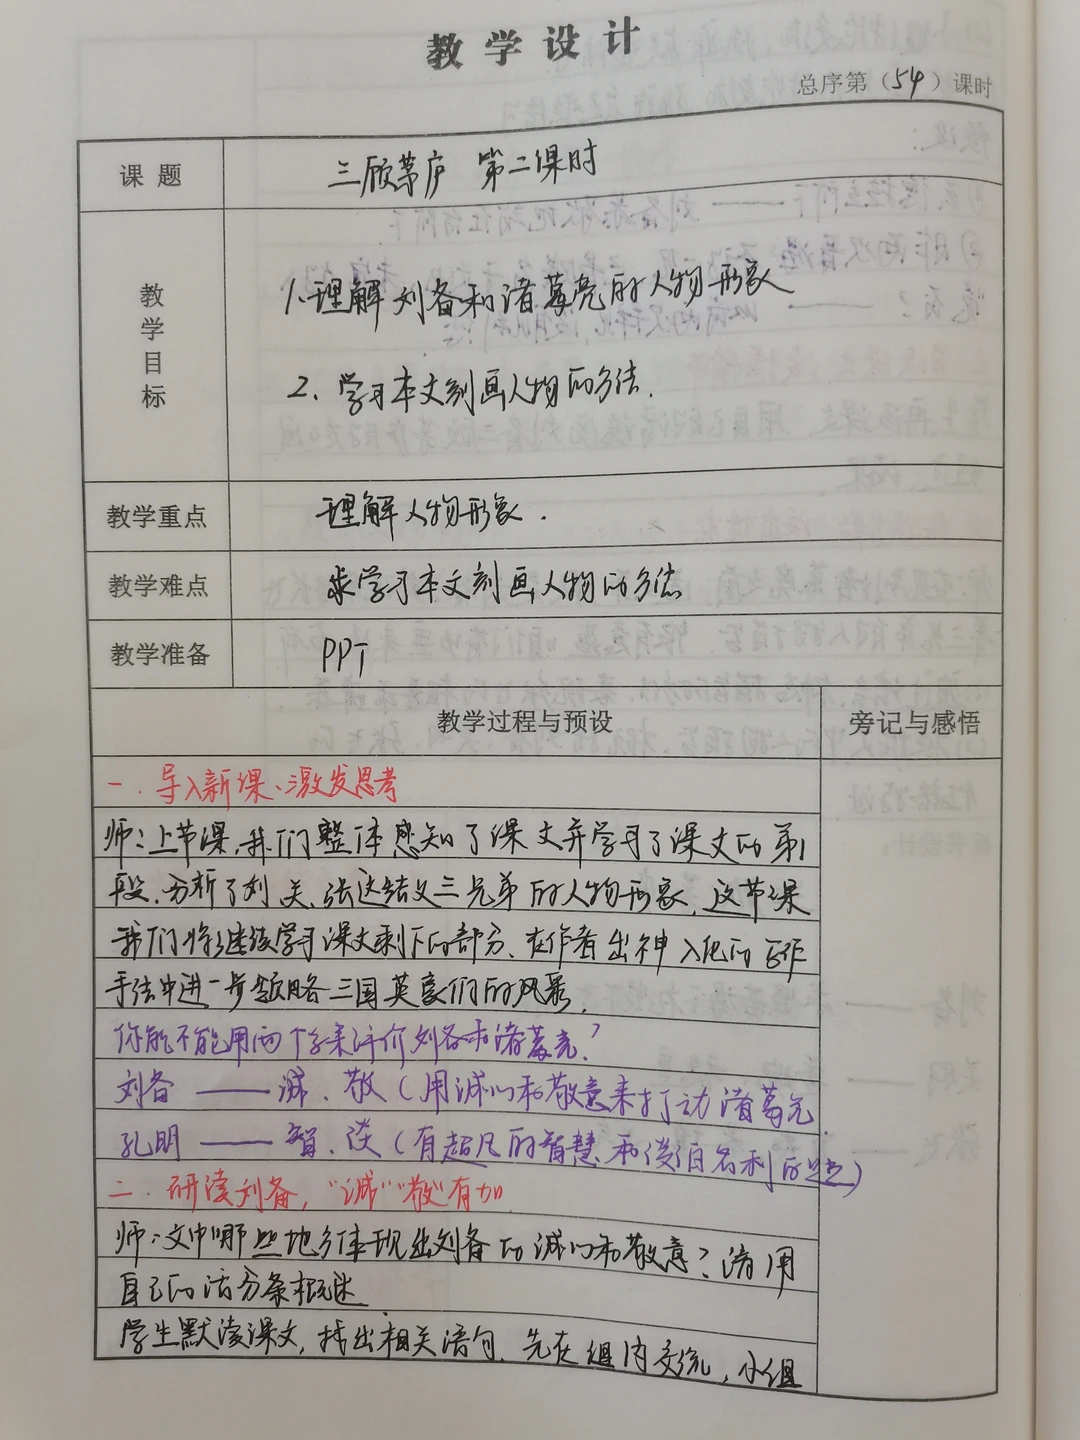 教学设计
总序第（54）课时
课题 三顾茅庐 第二课时
教学目标
1.理解刘备和诸葛亮的人物形象
2、学习本文刻画人物的方法.
教学重点 理解人物形象.
教学难点 学习本文刻画人物的方法
教学准备 PPT
教学过程与预设 旁记与感悟
一.导入新课、激发思考
师:上节课,我们整体感知了课文并学习了课文的第1
段,分析了刘、关、张这结义三兄弟的人物形象,这节课
我们将继续学习课文剩下的部分、在作者出神入化的写作
手法中进一步领略三国英豪们的风暴.
你能不能用两个字来评价刘备和诸葛亮?
刘备——诚、敬(用诚心和敬意来打动诸葛亮
孔明——智、淡(有超凡的智慧和淡泊名利的志)
二.研读刘备,“诚”“敬”有加
师:文中哪些地方体现出刘备的诚心和敬意?请用
自己的话分条概述
学生默读课文,找出相关语句、先在组内交流,小组